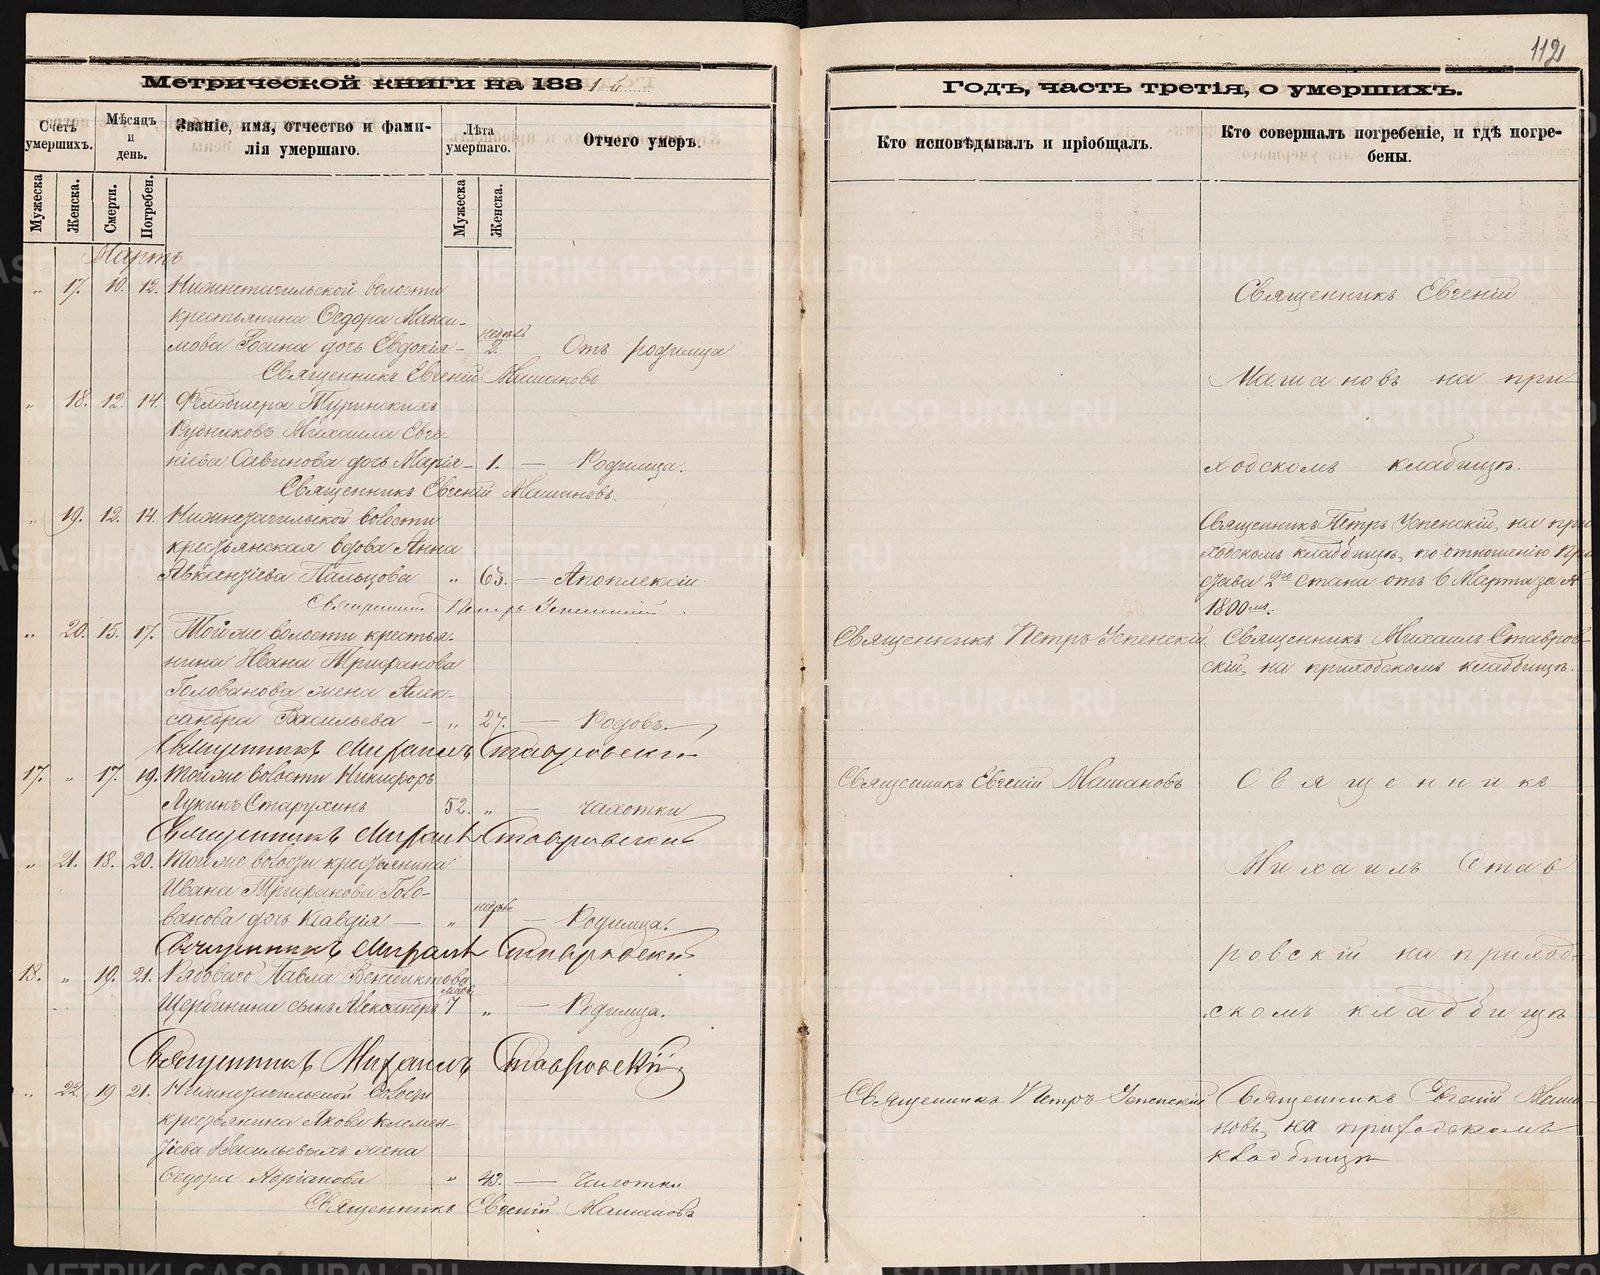 112
Метрической книги на 1881 й
Годъ, часть третія, о умершихъ.
Счетъ умершихъ.
Мѣсяцъ и день.
Званіе, имя, отчество и фами-
лія умершаго.
Лѣта умершаго.
Отчего умеръ.
Кто исповѣдывалъ и пріобщалъ.
Кто совершалъ погребеніе, и гдѣ погре-
бены.
Мужеска
Женска.
Смерти.
Погребен.
Мужеска
Женска.
Мартъ
" 17. 10. 12. Нижнетагильской волости
крестьянина Ѳедора Макси-
мова Росина дочь Евдокія – недѣль 2. Отъ родимца
Священникъ Евгеній Машановъ
Священникъ Евгеній
Машановъ на при-
" 18. 12. 14. Фельдшера Туринскихъ
Рудниковъ Михаила Евге-
ніева Савинова дочь Марія – 1. — Родимца.
Священникъ Евгеній Машановъ.
ходскомъ кладбищѣ.
" 19. 12. 14. Нижнетагильской волости
крестьянская вдова Анна
Авксентіева Пальцова " 65. — Апоплексіи
Священникъ Петръ Успенскій.
Священникъ Петръ Успенскій, на при
ходскомъ кладбищѣ, по отношенію При
става 2го стана отъ 6 Марта за №
1800мъ.
" 20. 15. 17. Той же волости крестья-
нина Ивана Трифанова
Голованова жена Алек-
сандра Васильева – " 27. — Родовъ.
Священникъ Михаилъ Ставровскій
Священникъ Петръ Успенскій.
Священникъ Михаилъ Ставров-
скій, на приходскомъ кладбищѣ.
17. " 17. 19. Той же волости Никифоръ
Лукинъ Старухинъ 52. " — Чахотки
Священникъ Михаилъ Ставровскій
Священникъ Евгеній Машановъ
Священникъ
" 21. 18. 20. Той же волости крестьянина
Ивана Трифанова Голо-
ванова дочь Клавдія — " недѣл. 1 — Родимца.
Священникъ Михаилъ Ставровскій
Михаилъ Став
ровскій на приход-
18. " 19. 21. Рядоваго Павла Венедиктова
Щербинина сынъ Александръ мѣсяц. 7 " — Родимца.
Священникъ Михаилъ Ставровскій
скомъ кладбищѣ
" 22. 19 21. Нижнетагильской волости
крестьянина Якова Климен-
тіева Васильевыхъ жена
Ѳедора Адріанова " 43. — Чахотки
Священникъ Евгеній Машановъ
Священникъ Петръ Успенскій
Священникъ Евгеній Маша-
новъ, на приходскомъ
кладбищѣ
METRIKI.GASO-URAL.RU